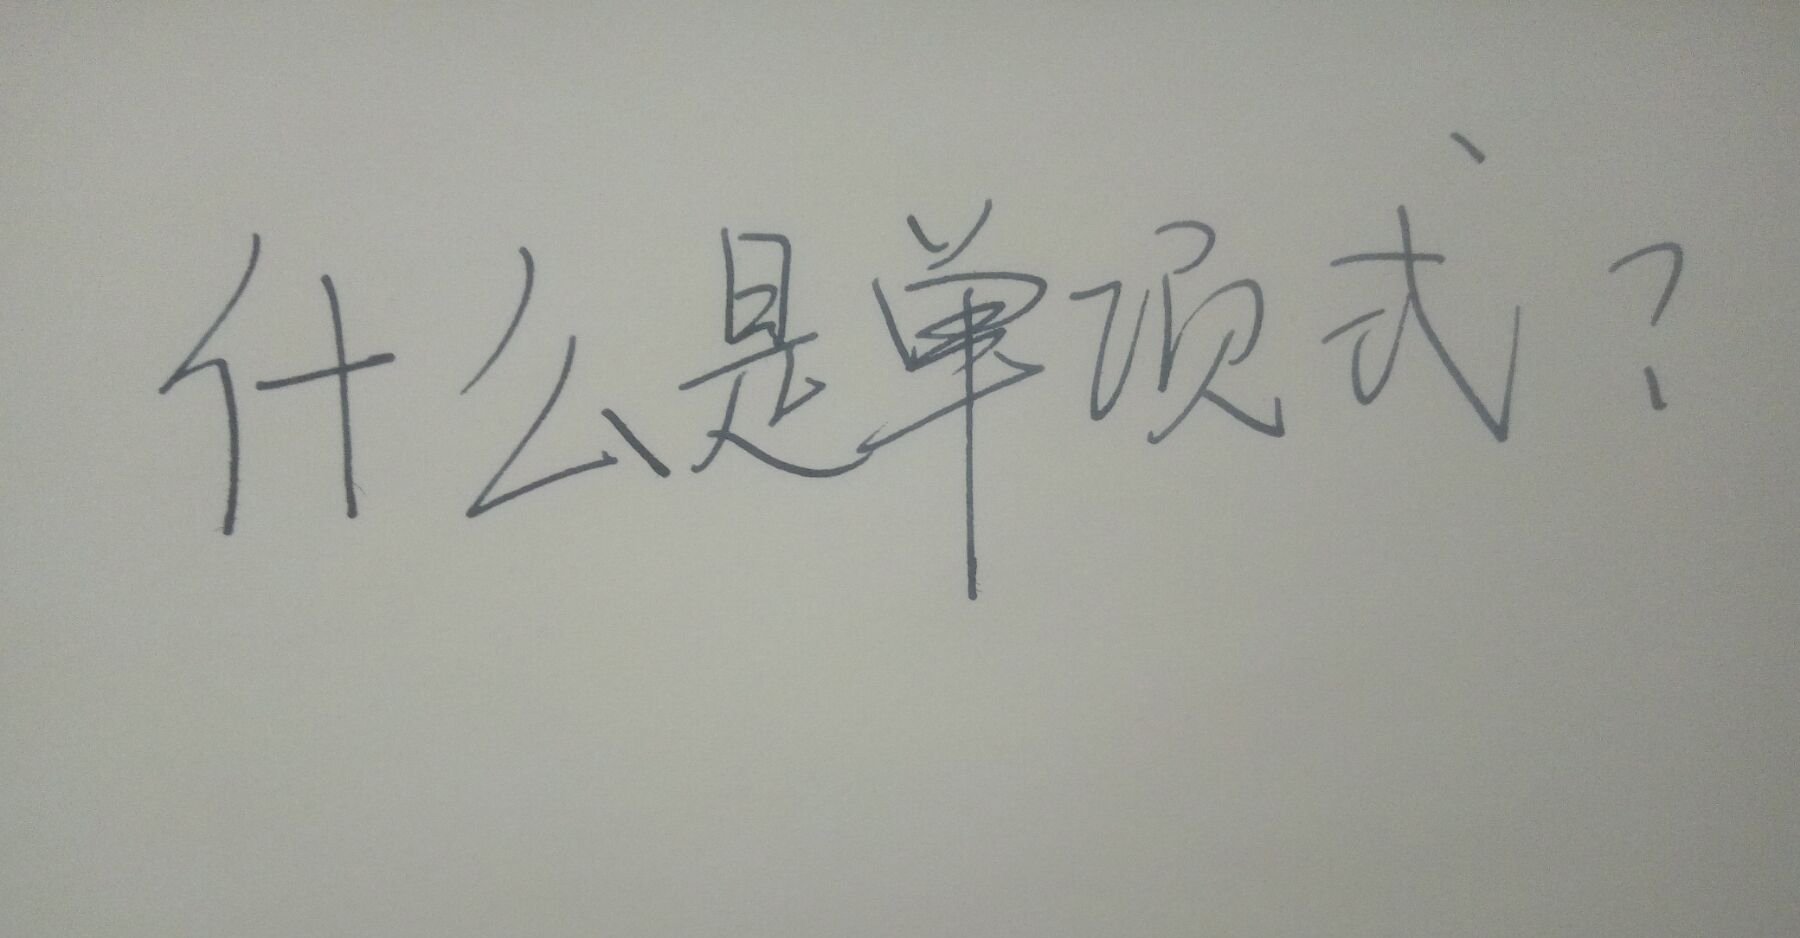 什么是单项式？